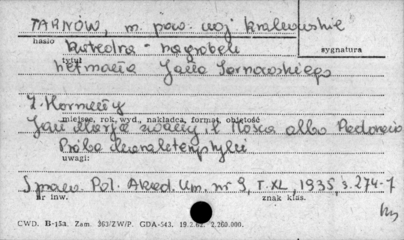 TARNÓW, m. pow. woj. krakowskie
hasło
katedra - nagrobek
sygnatura
tytuł
hetmana Jana Tarnowskiego
Z. Hornung
miejsce, rok, wyd., nakładca, format, objętość
Jan Marja zwany "il Mosca albo Padovano
Próba charakterystyki
uwagi:
Spraw. Pol. Akad. Um. nr 9, T. XL, 1935, s. 274-7
nr inw.
znak klas.
CWD. B-15a. Zam. 363/ZW/P. GDA-543. 19.2.62. 2.260.000.